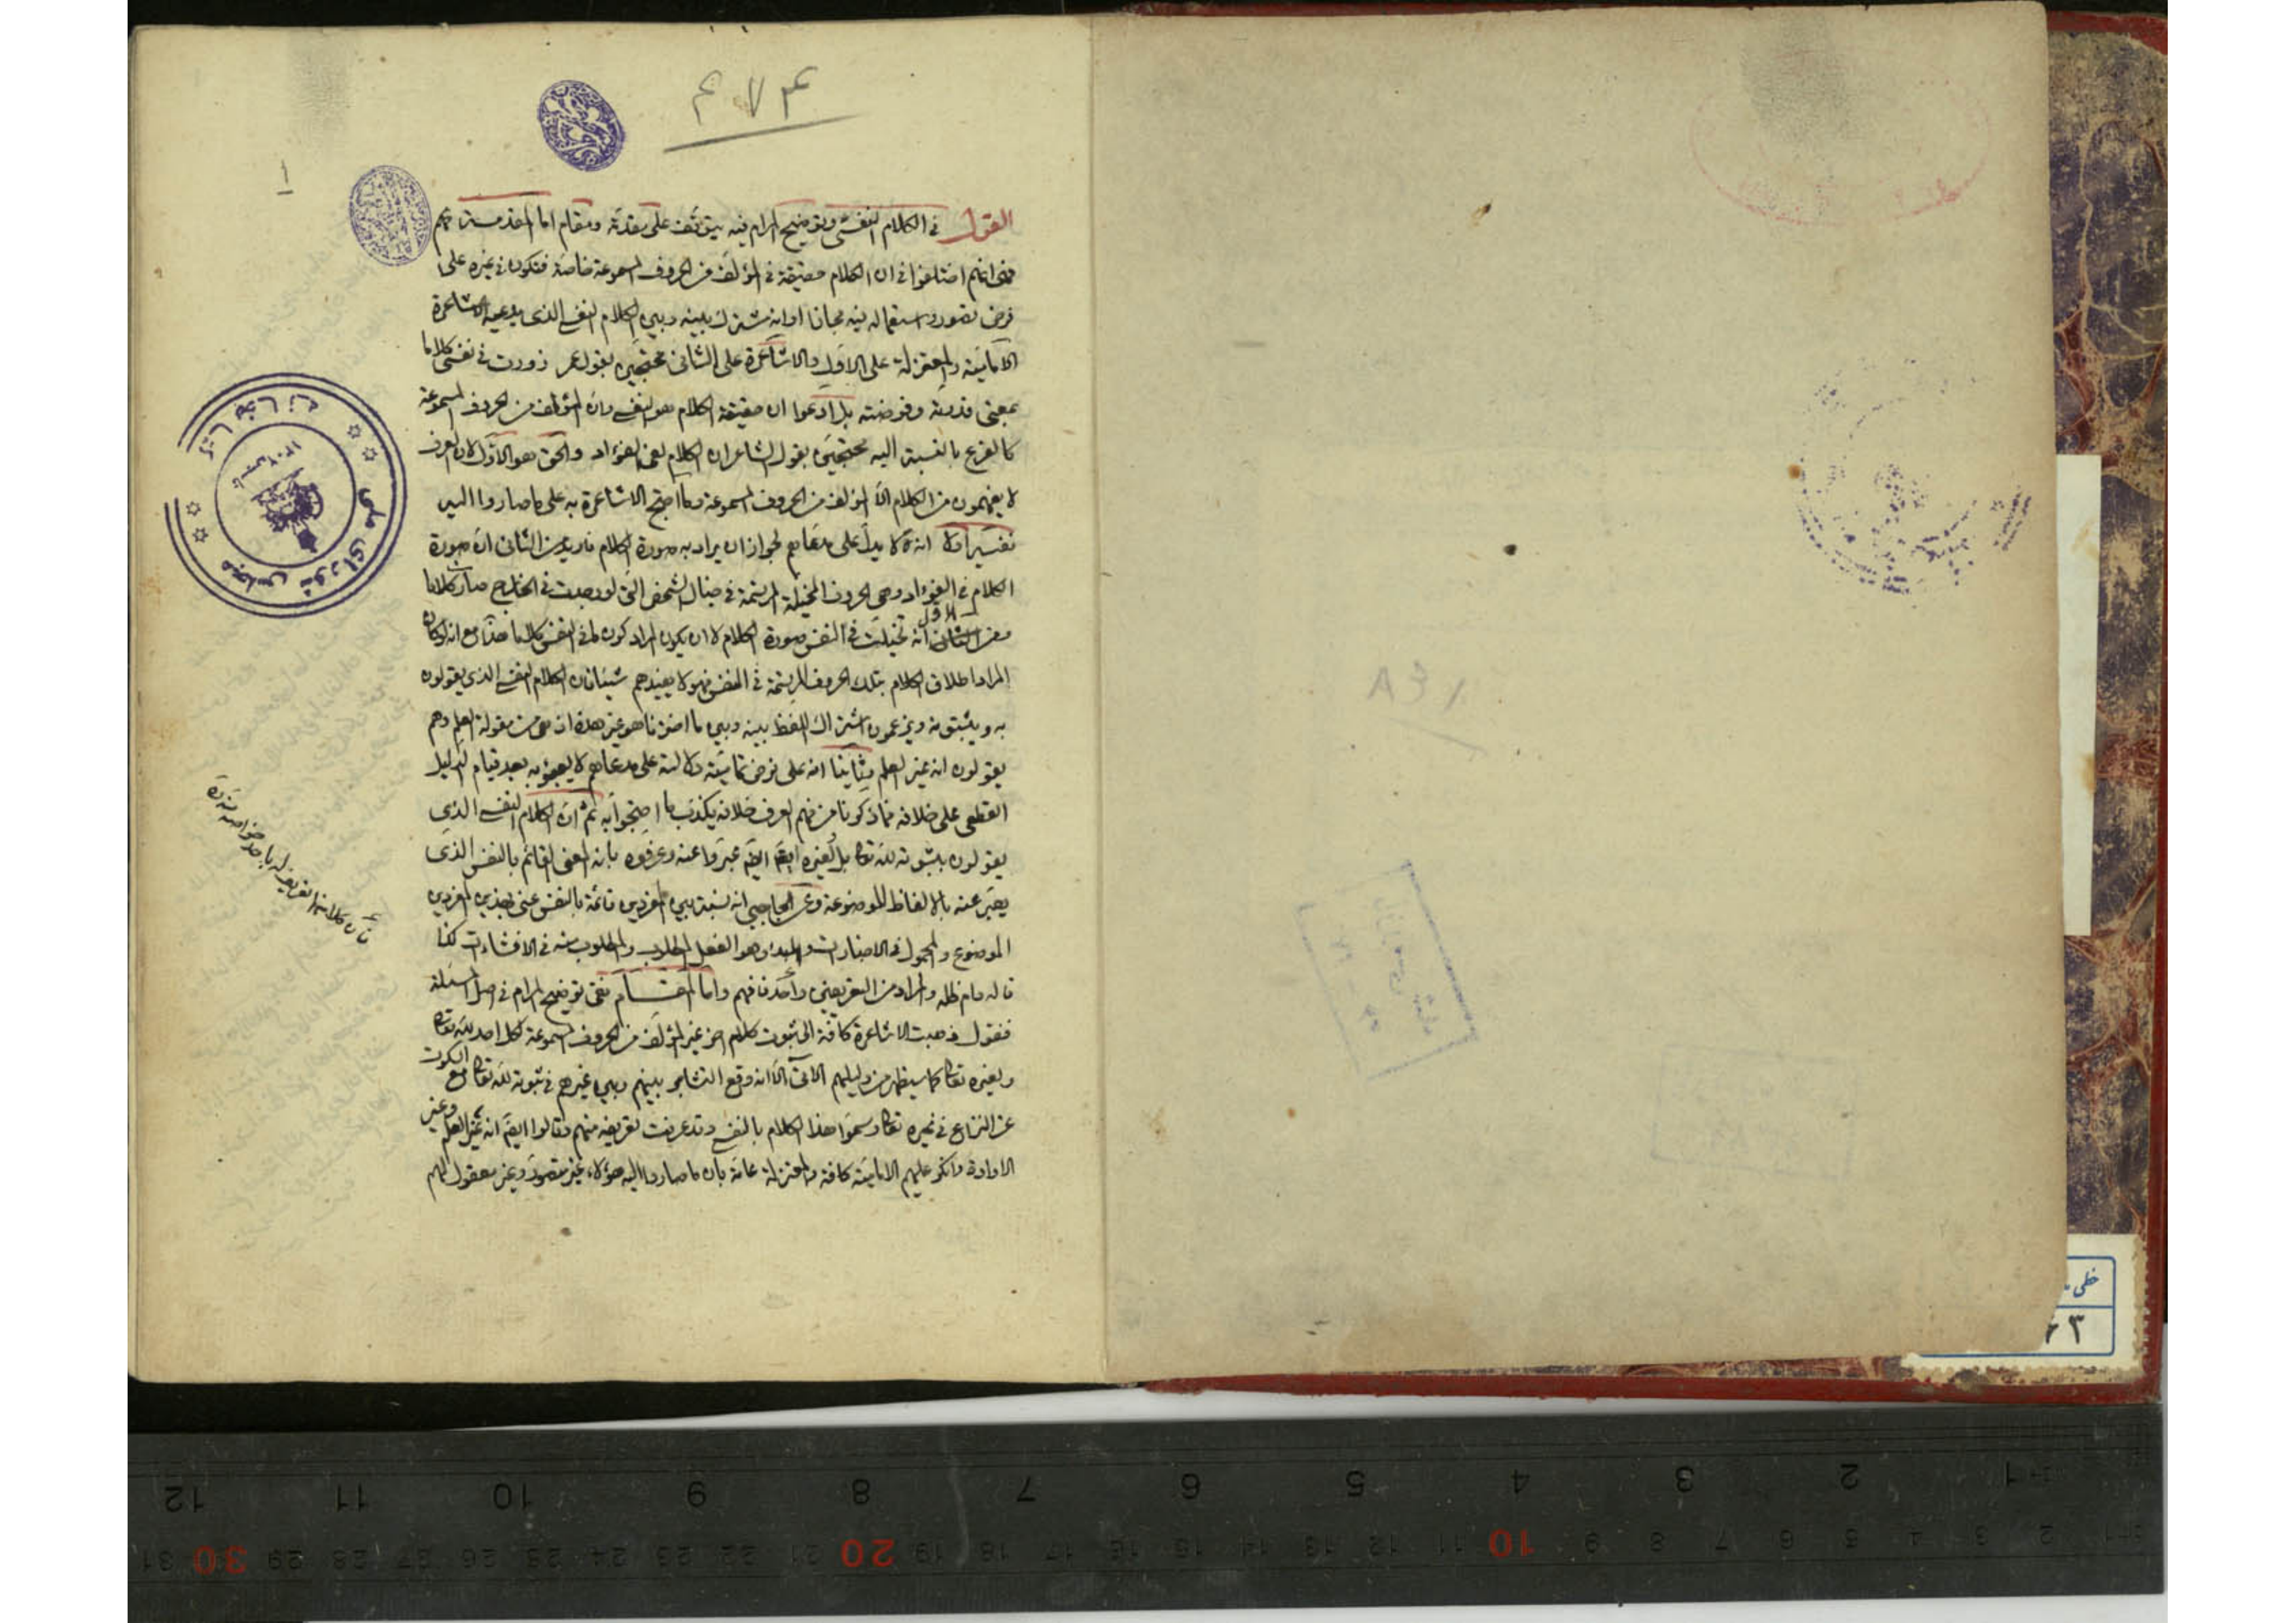 القول في الكلام النفسي وتوضيح المرام فيه يتوقف على مقدمة ومقام اما المقدمة
فهي انهم اختلفوا في ان الكلام حقيقة في المؤلف من الحروف المسموعة خاصة فتكون في غيره على
فرض تصور واستعماله فيه مجازا او انه مشترك بينه وبين الكلام النفسي الذي يدعيه الاشاعرة
الامامية والمعتزلة على الاول والاشاعرة على الثاني محتجين بقول عمر زورت في نفسي كلاما
بمعنى قدرته وفرضته بل ادعوا ان حقيقة الكلام هو النفسي وان المؤلف من الحروف المسموعة
كالفرع بالنسبة اليه محتجين بقول الشاعر ان الكلام لفي الفؤاد والحق هو الاول لان العرف
لا يفهمون من الكلام الا المؤلف من الحروف المسموعة وما احتج الاشاعرة به على ما صاروا اليه
اولا انه لا يدل على مدعاهم لجواز ان يراد به صورة الكلام من الثاني ان صورة
الكلام في الفؤاد وهي الحروف المخيلة المرتسمة في خيال الشخص التي لو وجدت في الخارج صارت كلاما
الاول
انه تخيلت في النفس صورة الكلام لا ان يكون المراد كون ما في النفس كلاما هذا مع انه لو كان
المراد اطلاق الكلام بتلك الحروف المرتسمة في النفس فهو لا يفيدهم شيئا فان الكلام النفسي الذي يقولون
به ويثبتونه ويزعمون اشتراك اللفظ بينه وبين ما اخترناه هو غير هذه اذ هي من مقولة العلم وهم
يقولون انه غير العلم وثانيا انه على فرض تمامية دلالته على مدعاهم لا يعبؤ به بعد قيام الدليل
القطعي على خلافه فما ذكرنا من فهم العرف خلافه يكذب ما احتجوا به ثم ان الكلام النفسي الذي
يقولون بثبوته لله تعا بل لغيره ايضا عبروا عنه وعرفوه بانه المعنى القائم بالنفس الذي
يعبر عنه بالالفاظ الموضوعة وعن الحاجبي انه نسبة بين المفردين قائمة بالنفس عنى بهذين المفردين
الموضوع والمحمول في الاخبارات والمبدا وهو الفعل المطلوب والمطلوب منه في الانشاءات كذا
قاله دام ظله والمراد من التعريفين واحد فافهم واما المقام ففي توضيح المرام في اصل المسئلة
فنقول ذهبت الاشاعرة كافة الى ثبوت كلام اخر غير المؤلف من الحروف المسموعة لكل احد لله تعا
ولغيره تعا كما سيظهر من دليلهم الاتي الا انه وقع التشاجر بينهم وبين غيرهم في ثبوته لله تعا مع السكوت
عن النزاع في غيره تعا وسموا هذا الكلام بالنفسي وقد عرفت تعريفه منهم وقالوا ايضا انه غير العلم وغير
الارادة وانكر عليهم الامامية كافة والمعتزلة عامة بان ما صاروا اليه هؤلاء غير متصور وغير معقول لهم
١
مجلس شورای ملی
کتابخانه
خطی